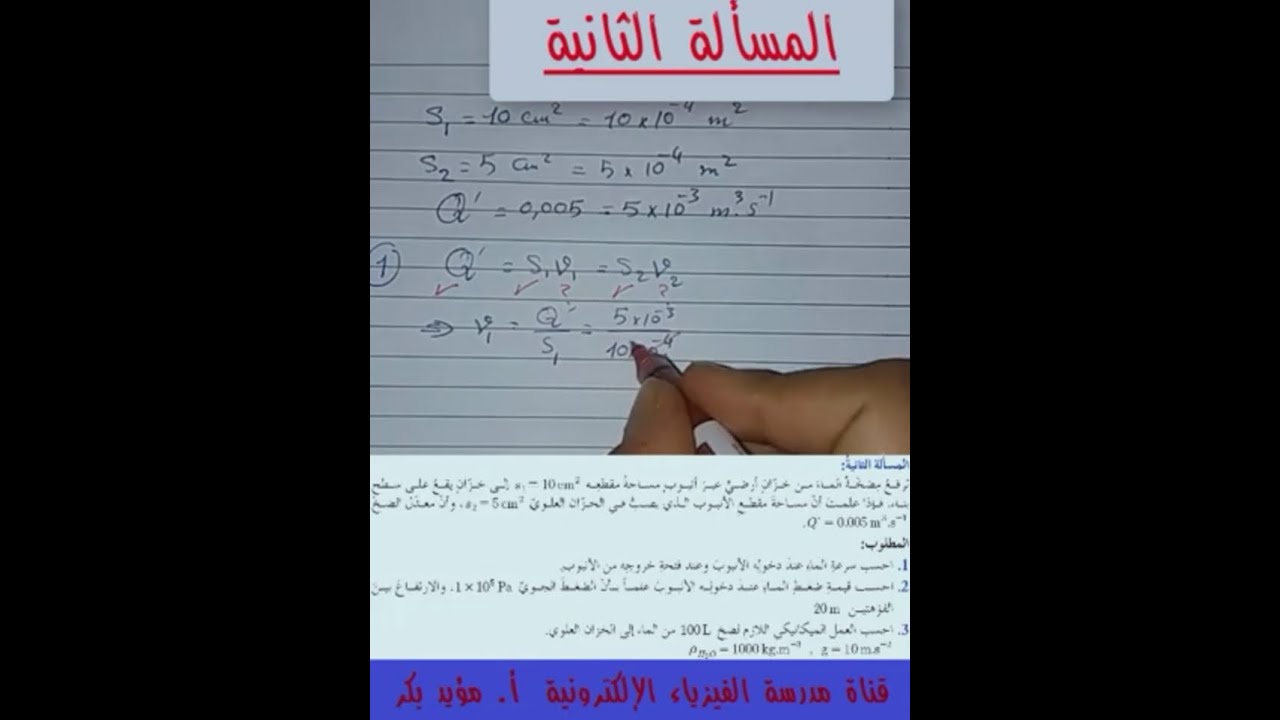 المسألة الثانية
S₁ = 10 cm² = 10 × 10⁻⁴ m²
S₂ = 5 cm² = 5 × 10⁻⁴ m²
Q' = 0,005 = 5 × 10⁻³ m³.s⁻¹
① Q' = S₁v₁ = S₂v₂
✓ ✓ ? ✓ ?
⇒ v₁ = Q'/S₁ = 5×10⁻³/10×10⁻⁴
المسألة الثانية:
ترفع مضخة الماء من خزان أرضي عبر أنبوب مساحة مقطعه s₁ = 10 cm² إلى خزان يقع على سطح
بناء، فإذا علمت أن مساحة مقطع الأنبوب الذي يصب في الخزان العلوي s₂ = 5 cm²، وأن معدل الضخ
Q' = 0.005 m³.s⁻¹.
المطلوب:
1. احسب سرعة الماء عند دخوله الأنبوب وعند فتحة خروجه من الأنبوب.
2. احسب قيمة ضغط الماء عند دخوله الأنبوب علماً بأن الضغط الجوي 1 × 10⁵ Pa، والارتفاع بين
الفوهتين 20 m
3. احسب العمل الميكانيكي اللازم لضخ 100 L من الماء إلى الخزان العلوي.
ρ_H₂O = 1000 kg.m⁻³ , g = 10 m.s⁻²
قناة مدرسة الفيزياء الإلكترونية أ. مؤيد بكر